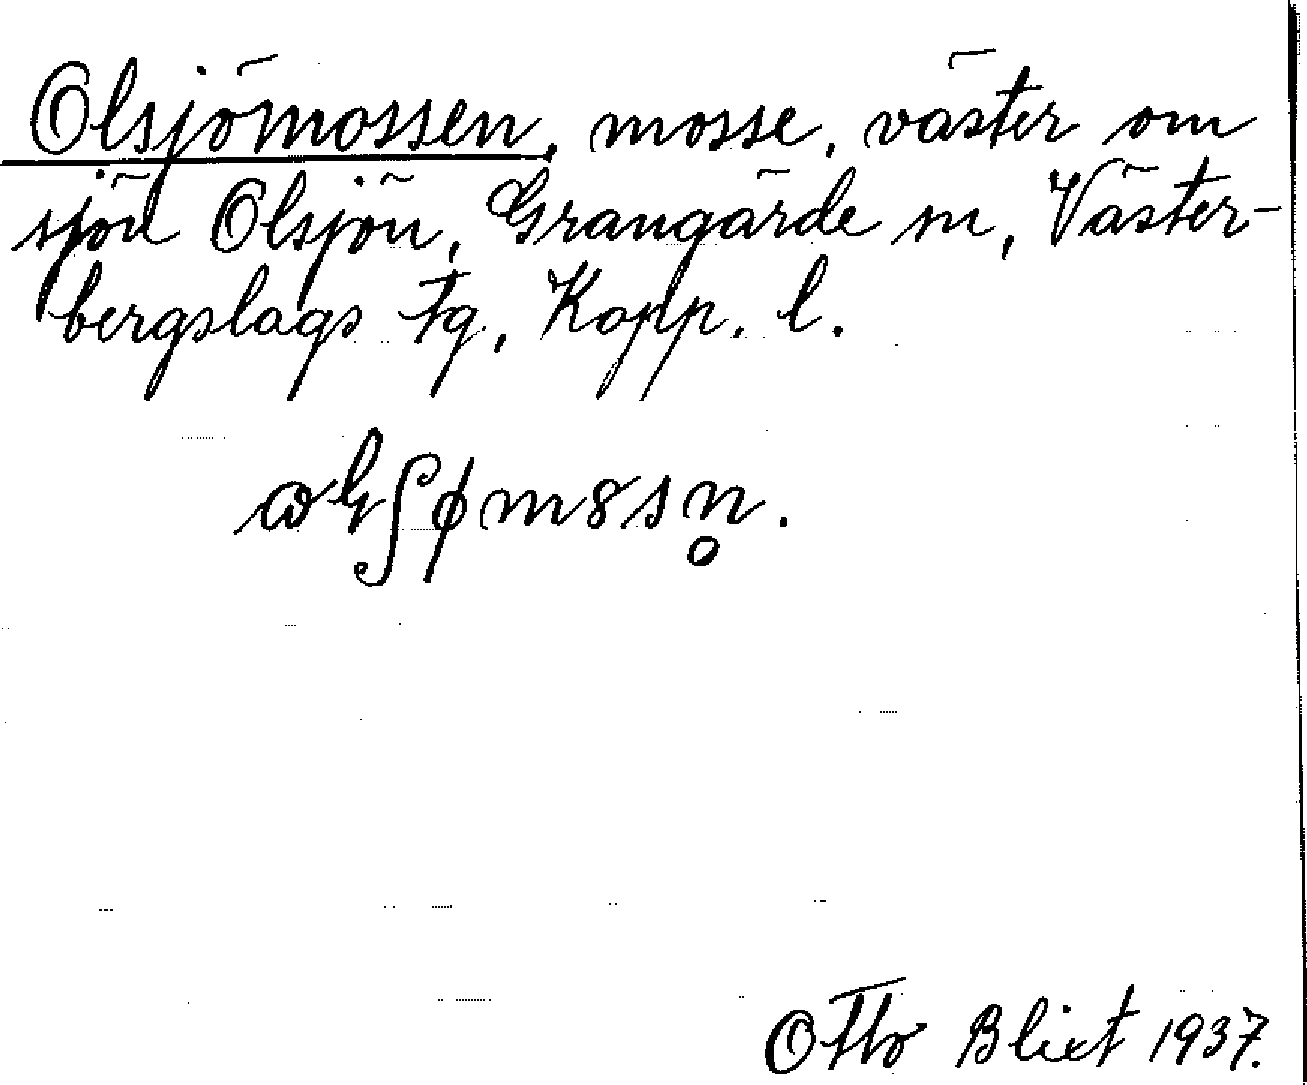 Olsjömossen, mosse, väster om
sjön Olsjön, Grangärde sn, Väster-
bergslags tg, Kopp. l.
Otto Blixt 1937.